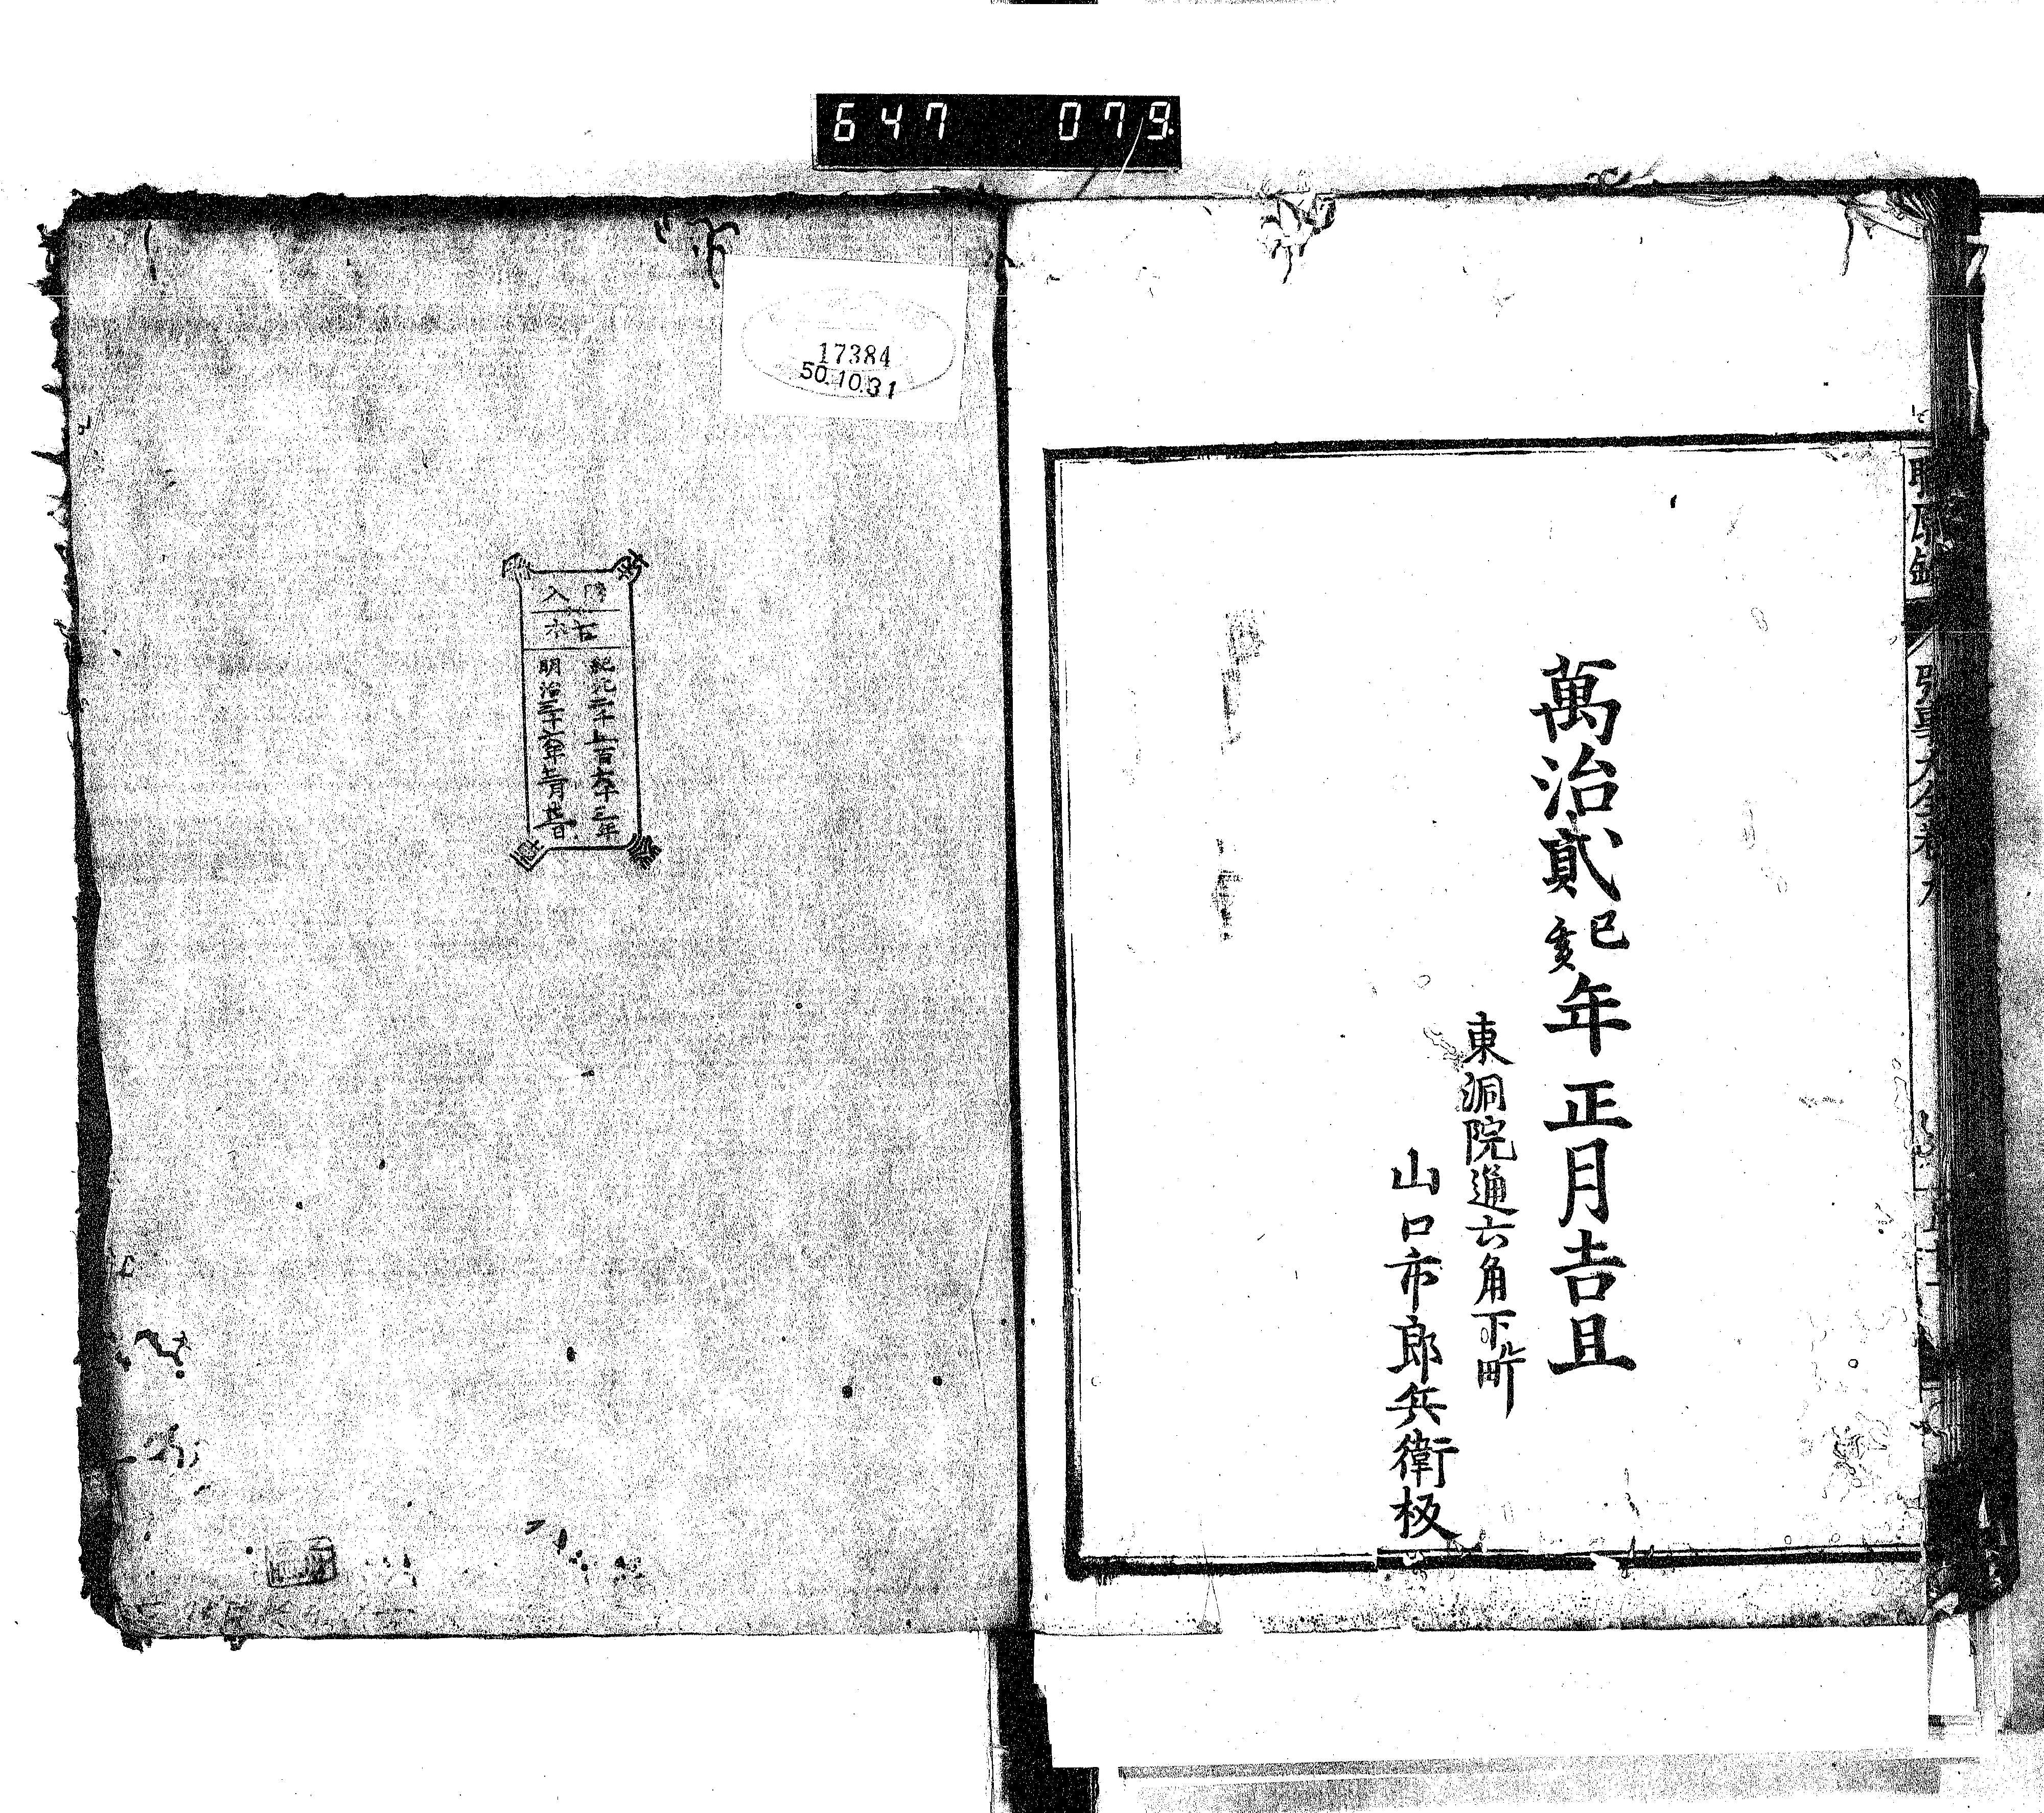 647 079
萬治貳己亥年正月吉且
東洞院通六角下町
山口市郎兵衛板
17384
50.10.31
購入
古本
紀元二千五百六十三年
明治三十六年